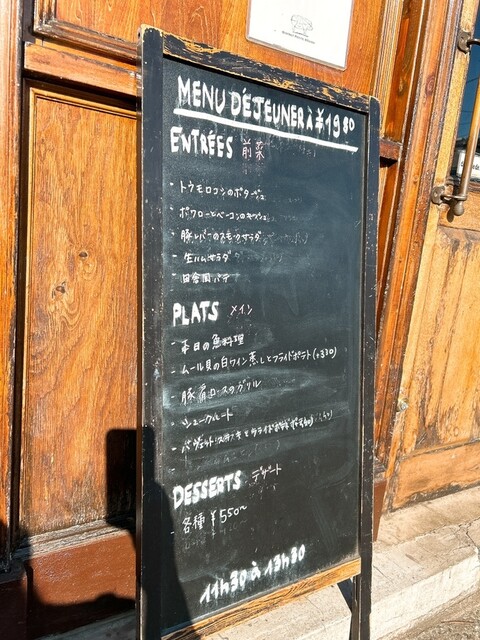 MENU DÉJEUNER À ¥1980
ENTRÉES 前菜
- トウモロコシのポタージュ
- ポワローとベーコンのキッシュ
- 豚レバーのスモークサラダ
- 生ハムサラダ
- 田舎風パテ
PLATS メイン
- 本日の魚料理
- ムール貝の白ワイン蒸しとフライドポテト(+330)
- 豚肩ロースのグリル
- シュークルート
DESSERTS デザート
- 各種 ¥550~
11h30 à 13h30